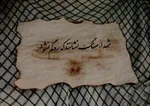 شهدا سنگ نشانند که ره گم نشود